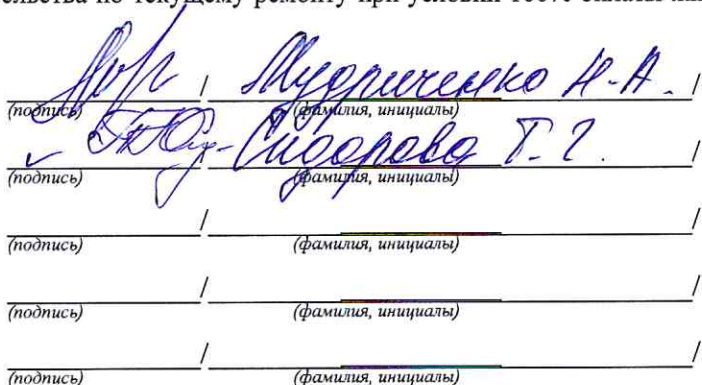 ельства по текущему ремонту при условии 100% оплаты
/ Мудриченко Н.А. /
(подпись) (фамилия, инициалы)
/ Сидорова Т.Г. /
(подпись) (фамилия, инициалы)
/ /
(подпись) (фамилия, инициалы)
/ /
(подпись) (фамилия, инициалы)
/ /
(подпись) (фамилия, инициалы)